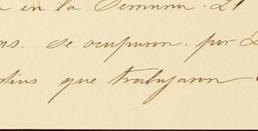 en la Semana. 21
se ocuparon. por
que trabajaron